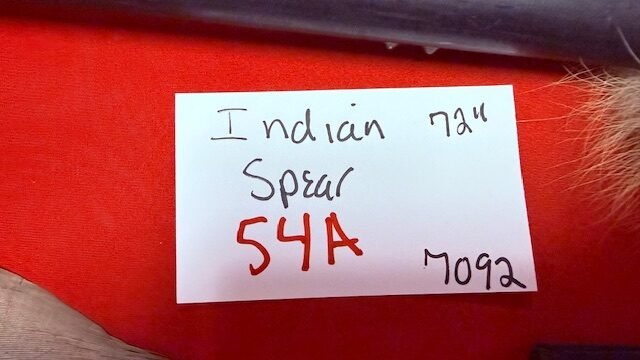 Indian 72"
Spear
54A
7092